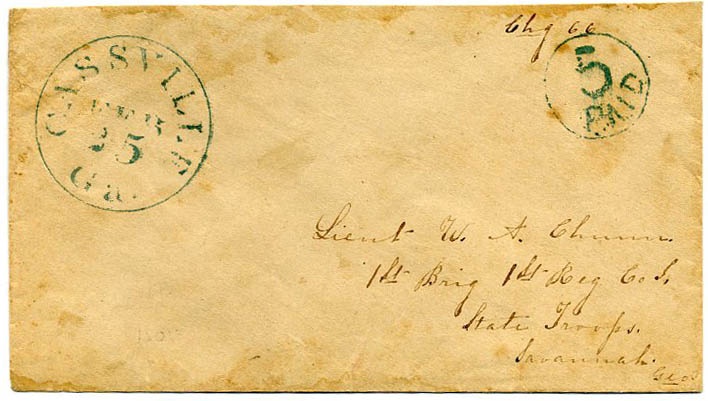 Chg 66
CASSVILLE
25
Ga.
5
PAID
Lieut W. A. Chunn.
1st Brig 1st Reg Co I.
State Troops.
Savannah.
Geo